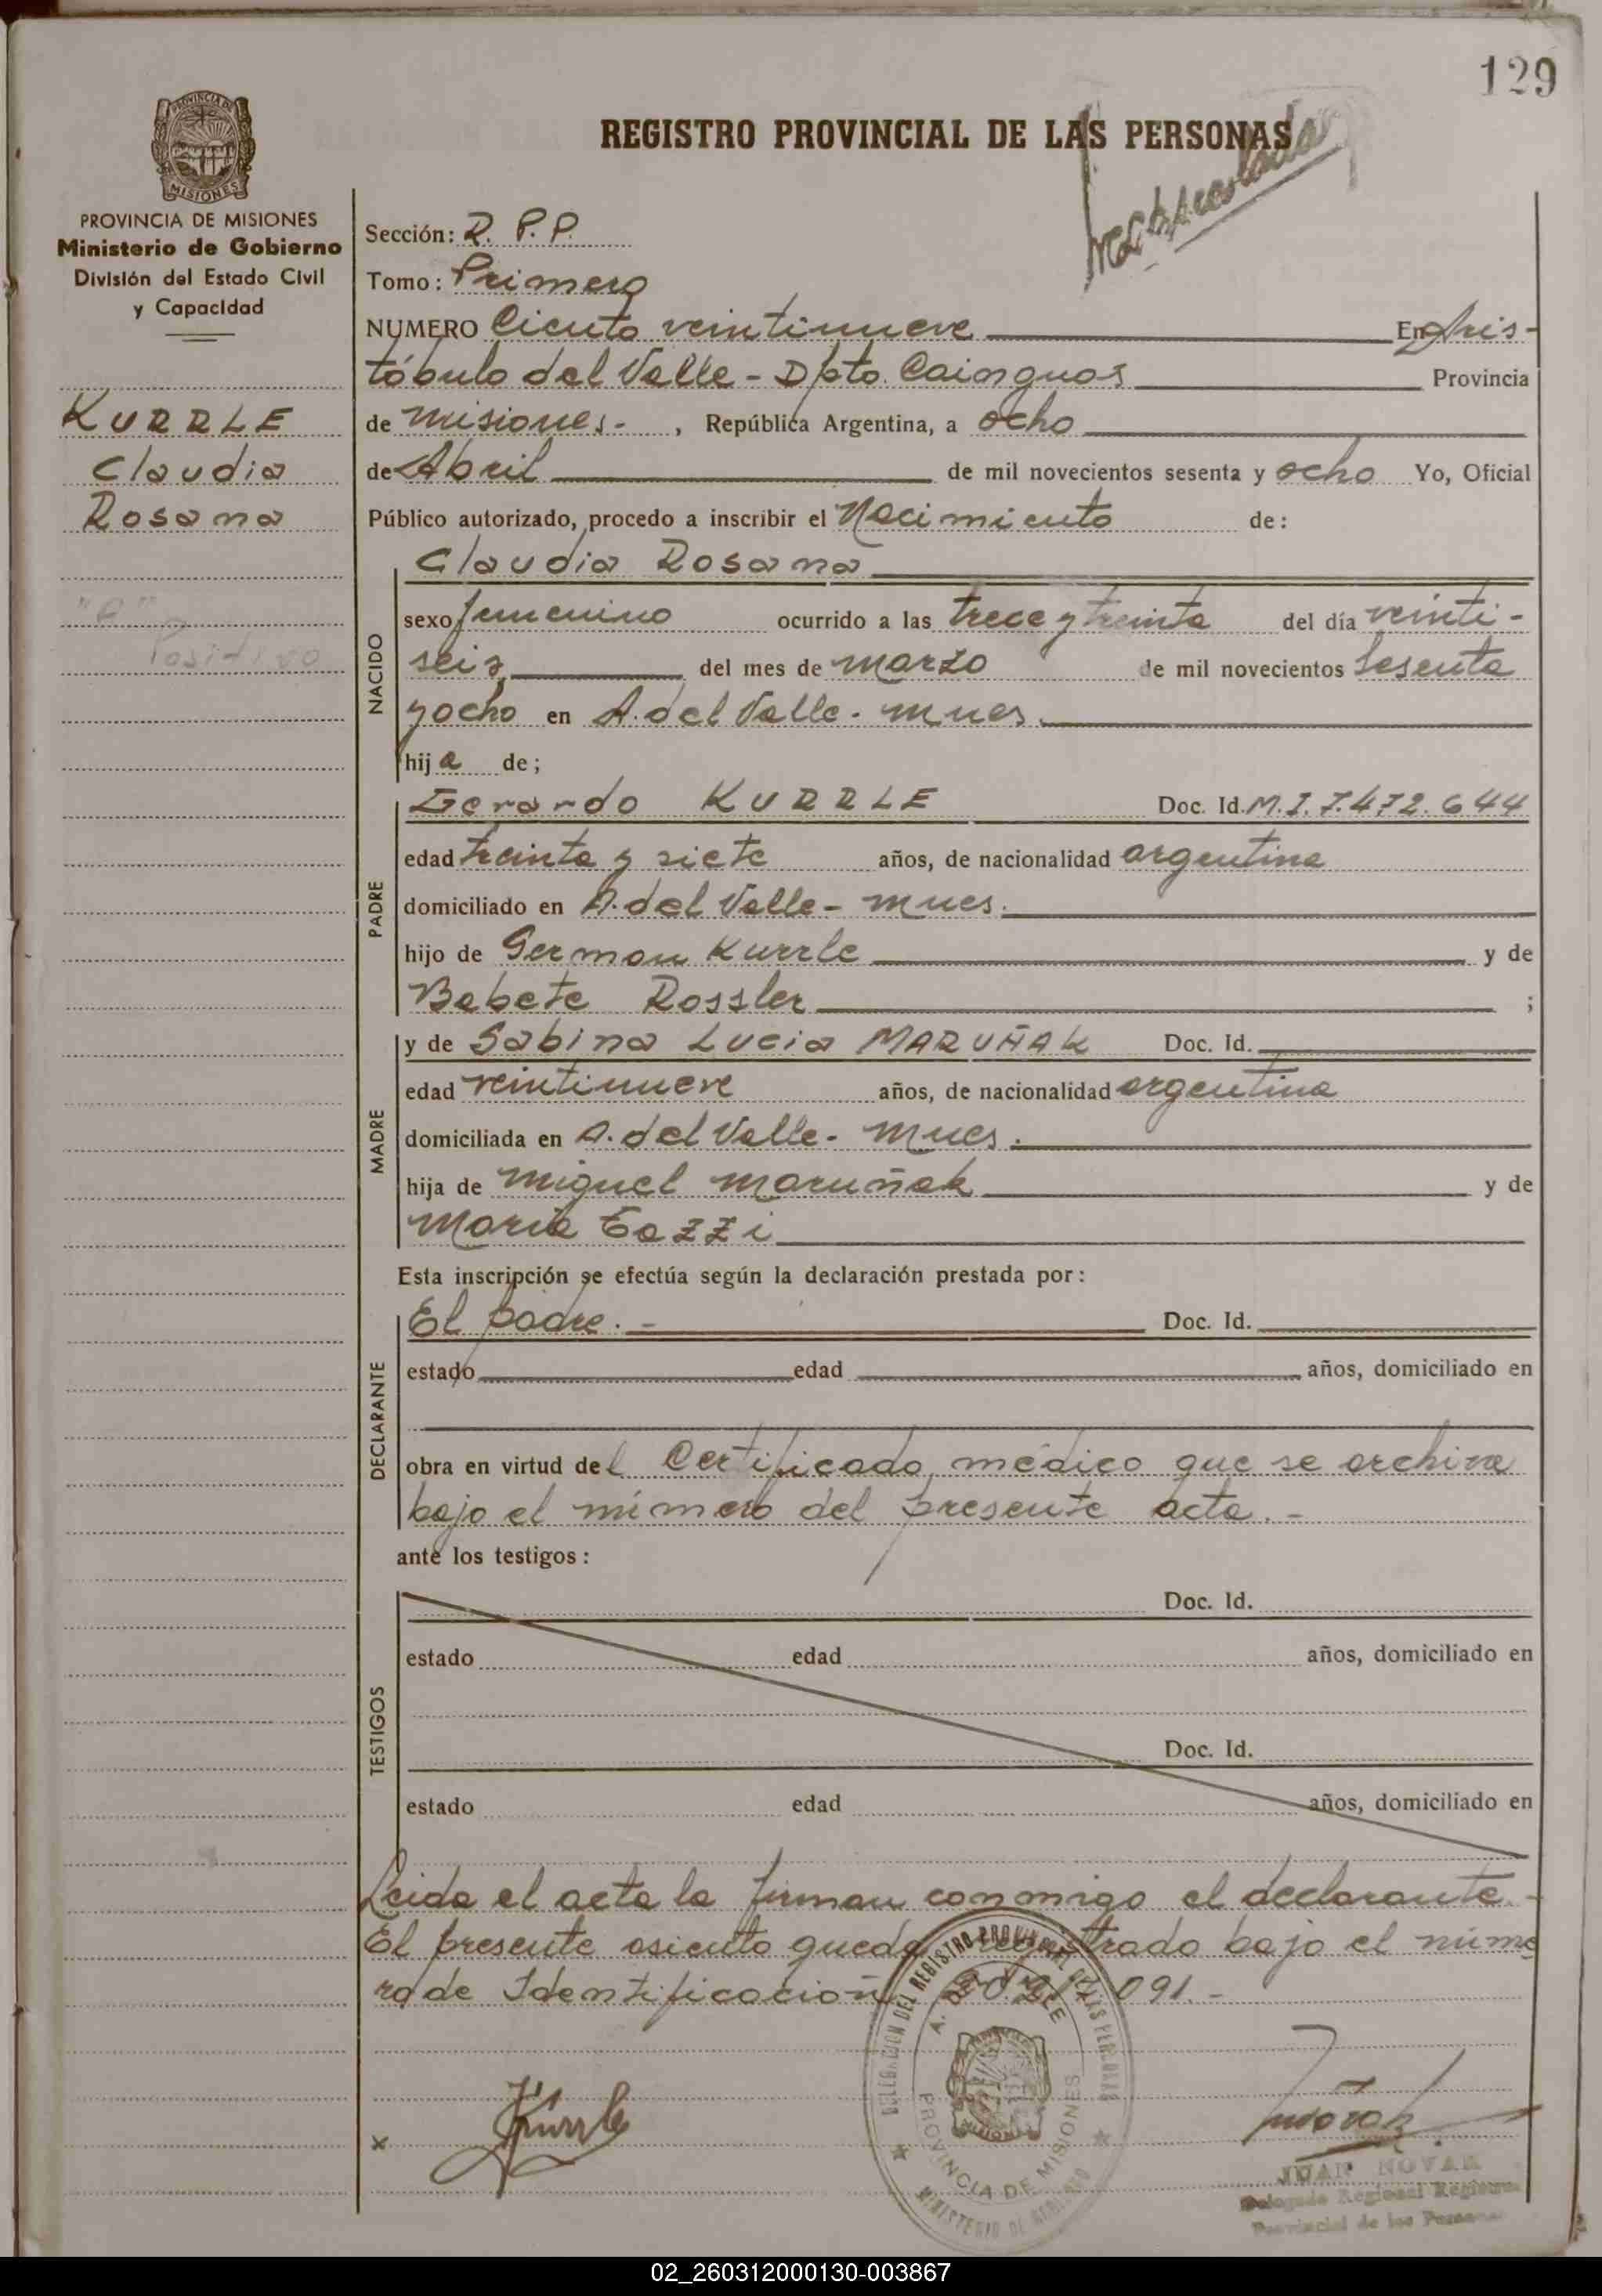 129
PROVINCIA DE
MISIONES
REGISTRO PROVINCIAL DE LAS PERSONAS
PROVINCIA DE MISIONES
Ministerio de Gobierno
División del Estado Civil
y Capacidad
KURRLE
Claudia
Rosana
Positivo
Sección: R. P.P.
Tomo: Primero
NUMERO Ciento veintinueve En Aris-
tóbulo del Valle - Dpto. Cainguas Provincia
de Misiones.- , República Argentina, a ocho
de Abril de mil novecientos sesenta y ocho Yo, Oficial
Público autorizado, procedo a inscribir el Nacimiento de:
Claudia Rosana
NACIDO
sexo femenino ocurrido a las trece y treinta del día veinti-
seis del mes de marzo de mil novecientos sesenta
y ocho en A. del Valle - Mnes.
hija de;
PADRE
Gerardo KURRLE Doc. Id. M.I. 7.472.644
edad treinta y siete años, de nacionalidad argentina
domiciliado en A. del Valle - Mnes.
hijo de German Kurrle y de
Babete Rossler ;
MADRE
y de Sabina Lucia MARUÑAK Doc. Id.
edad veintinueve años, de nacionalidad argentina
domiciliada en A. del Valle - Mnes.
hija de Miguel Maruñak y de
Maria
Esta inscripción se efectúa según la declaración prestada por:
DECLARANTE
El padre. - Doc. Id.
estado edad años, domiciliado en
obra en virtud del Certificado médico que se archiva
bajo el número del presente acta. -
ante los testigos:
TESTIGOS
Doc. Id.
estado edad años, domiciliado en
Doc. Id.
estado edad años, domiciliado en
Leida el acta la firman conmigo el declarante. -
El presente asiento queda registrado bajo el núme
ro de Identificación 091. -
DELEGACION DEL REGISTRO PROVINCIAL DE LAS PERSONAS
A. DEL VALLE
PROVINCIA DE MISIONES
MINISTERIO DE GOBIERNO
x Kurrle
JUAN NOVAK
Delegado Regional Registro
Provincial de las Personas
02_260312000130-003867